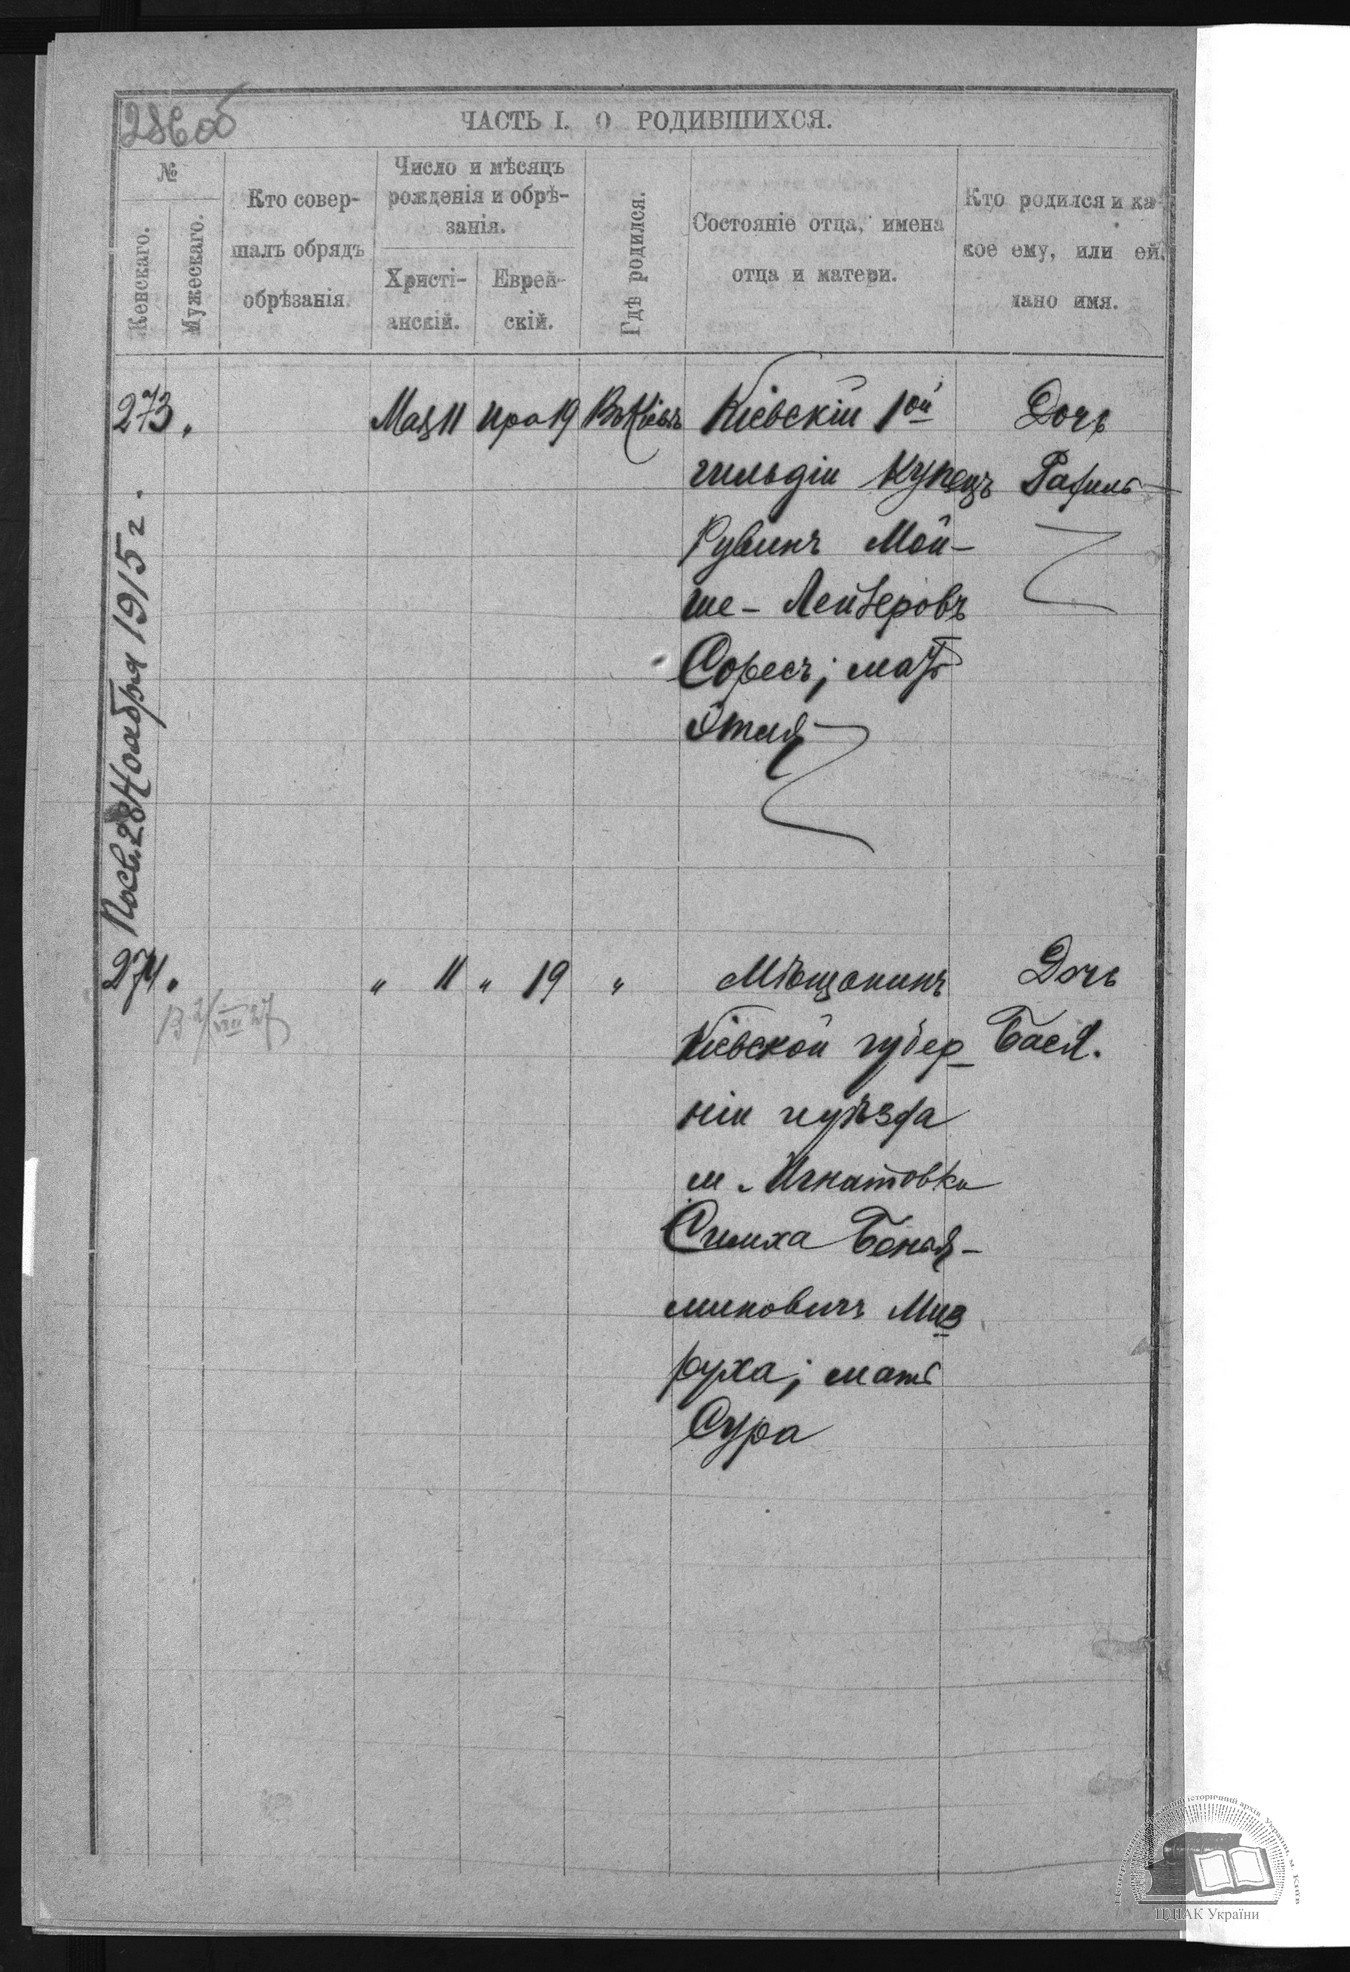 286об
ЧАСТЬ I. О РОДИВШИХСЯ.
№
Женскаго.
Мужескаго.
Кто совер-
шалъ обрядъ
обрѣзанія.
Число и мѣсяцъ
рожденія и обрѣ-
занія.
Христі-
анскій.
Еврей-
скій.
Гдѣ родился.
Состояніе отца, имена
отца и матери.
Кто родился и ка-
кое ему, или ей,
дано имя.
273.
Мая 11
Ира 19
Въ Кіевѣ
Кіевскій 1ой
гильдіи купецъ
Рувинъ Мой-
ше-Лейзеровъ
Соресъ; мать
Этля
Дочь
Рахиль
28 Ноября 1915 г.
274.
" 11 " 19 "
Мѣщанинъ
Кіевской губер-
ніи и уѣзда
м. Игнатовки
Симха Беня-
миновичъ Миз
руха; мать
Сура
Дочь
Бася.
ЦДІАК України